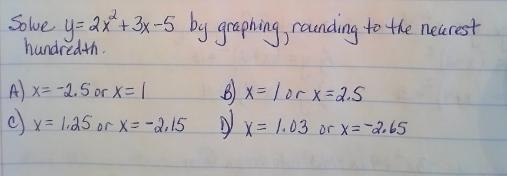 Solve y = 2x² + 3x - 5 by graphing, rounding to the nearest
hundredth.
A) x = -2.5 or x = 1 B) x = 1 or x = 2.5
C) x = 1.25 or x = -2.15 D) x = 1.03 or x = -2.65